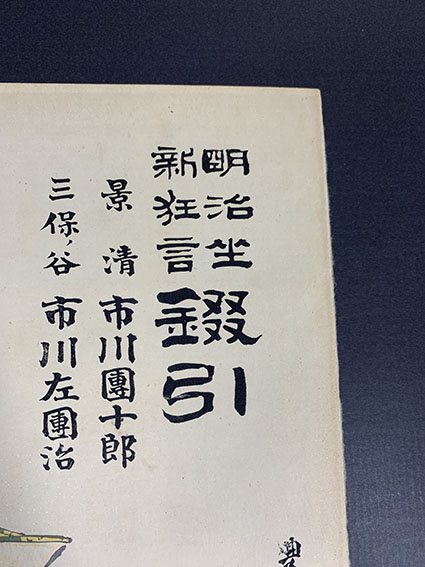 明治坐
新狂言
錣引
景清 市川團十郎
三保ノ谷 市川左團治